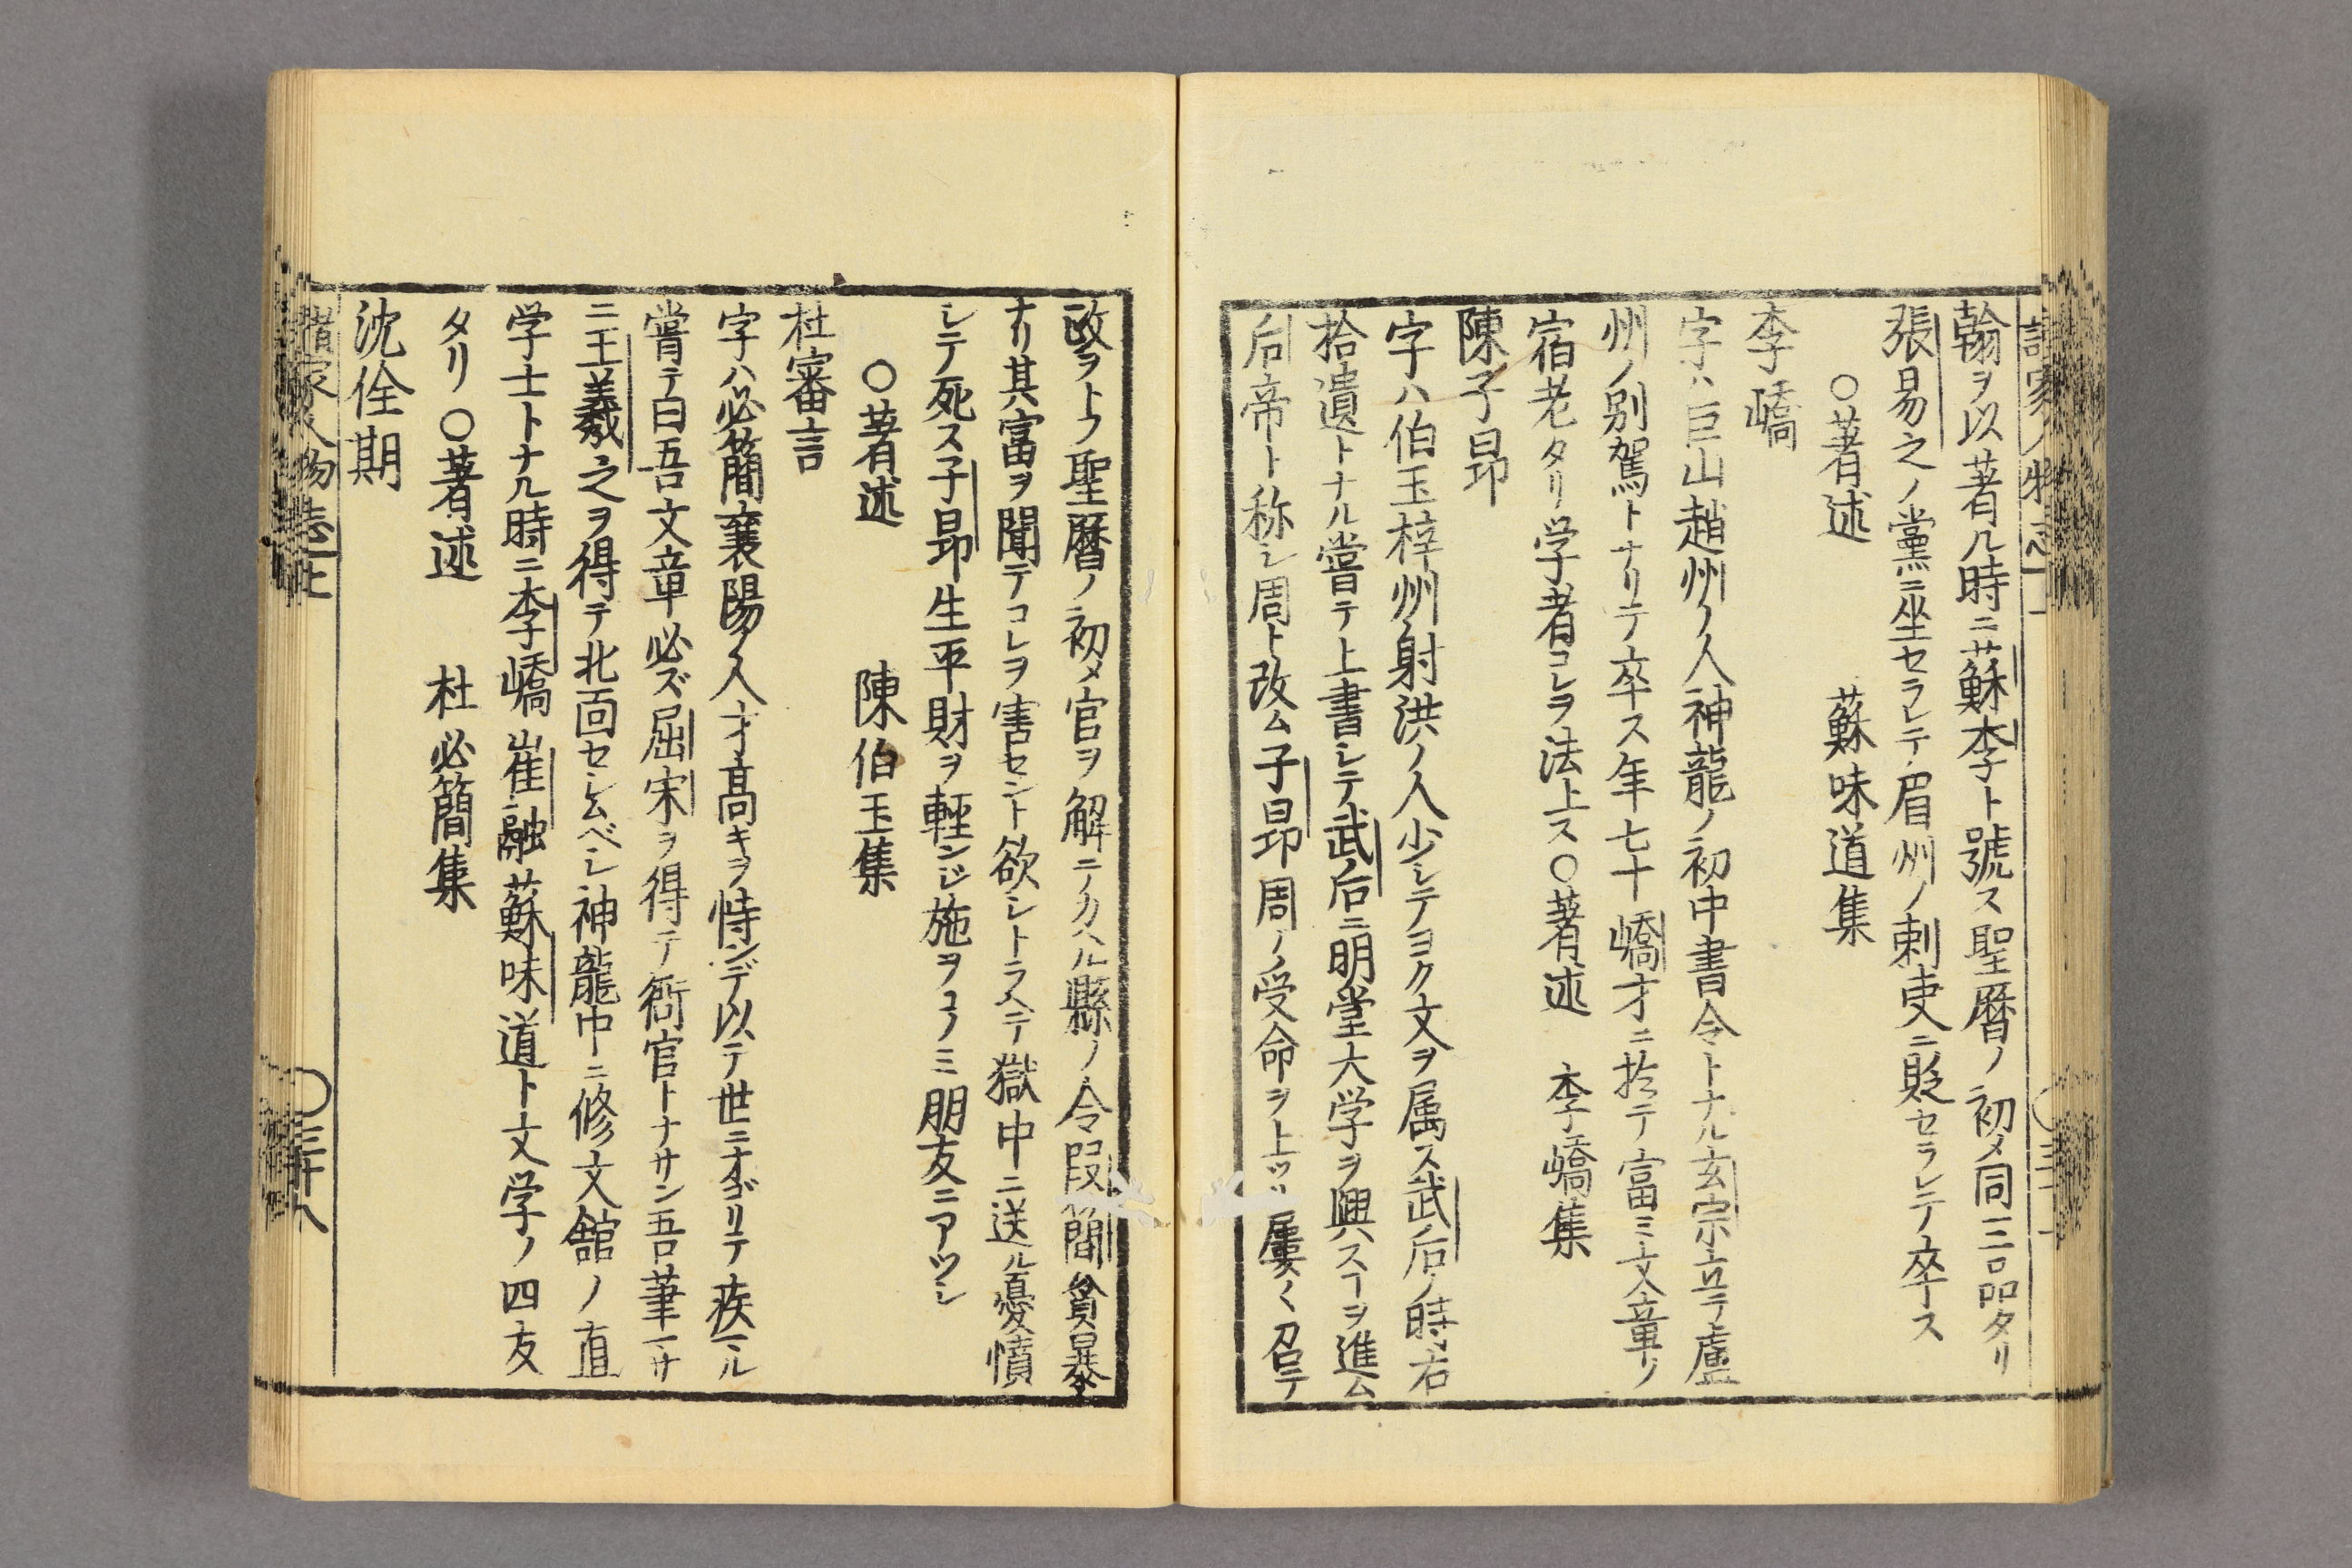 翰ヲ以著ル時ニ蘇李ト號ス聖暦ノ初メ同三品タリ
張易之ノ黨ニ坐セラレテ眉州ノ刺史ニ貶セラレテ卒ス
○著述 蘇味道集
李嶠
字ハ巨山趙州ノ人神龍ノ初中書令トナル玄宗立テ盧
州ノ別駕トナリテ卒ス年七十嶠才ニ於テ富ミ文章ノ
宿老タリ学者コレヲ法トス○著述 李嶠集
陳子昂
字ハ伯玉梓州射洪ノ人少シテヨク文ヲ属ス武后ノ時右
拾遺トナル嘗テ上書シテ武后ニ明堂大学ヲ興スヿヲ進ム
后帝ト称シ周ト改ム子昂周ノ受命ヲ上ツル屢〱召テ
政ヲトフ聖暦ノ初メ官ヲ解ニカヘル縣ノ令段簡貪暴
ナリ其富ヲ聞テコレヲ害セント欲シトラヘテ獄中ニ送ル憂憤
シテ死ス子昂生平財ヲ軽ンジ施ヲコノミ朋友ニアツシ
○著述 陳伯玉集
杜審言
字ハ必簡襄陽ノ人才高キヲ恃ンデ以テ世ニオゴリテ疾マル
嘗テ曰吾文章必ズ屈宋ヲ得テ衙官トナサン吾筆マサ
ニ王羲之ヲ得テ北面セシムベシ神龍中ニ修文舘ノ直
学士トナル時ニ李嶠崔融蘇味道ト文学ノ四友
タリ○著述 杜必簡集
沈佺期
諸家人物志上 ○三十八